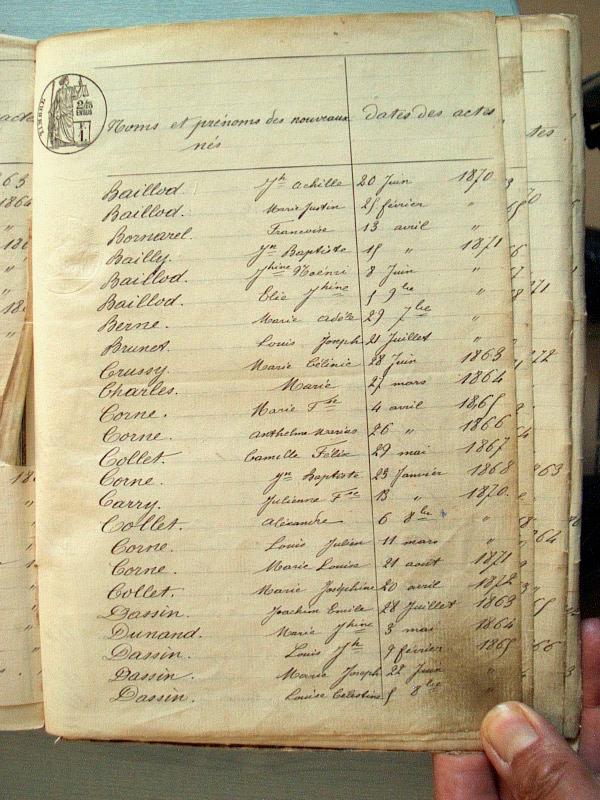 TIMBRE
Noms et prénoms des nouveaux
nés
dates des actes
Baillod. Jph Achille 20 Juin 1870
Baillod. Marie Justin 25 février "
Bornarel. Francoise 13 avril "
Bailly. Jn Baptiste 15 " 1871
Baillod. Jphine Noémi 8 Juin "
Baillod. Elie Jphine 1 9bre "
Berne. Marie Adèle 29 7bre "
Brunet. Louis Joseph 21 Juillet "
Crussy. Marie Célinie 28 Juin 1863
Charles. Marie 27 mars 1864
Corne. Marie Fse 4 avril 1865
Corne. Anthelme Marius 26 " 1866
Collet. Camelle Félix 29 mai 1867
Corne. Jn Baptiste 23 Janvier 1868
Carry. Julienne Fse 13 " 1870
Collet. Alexandre 6 8bre "
Corne. Louis Julien 11 mars "
Corne. Marie Louise 21 août 1871
Collet. Marie Joséphine 20 avril 1872
Dassin. Joachim Emile 28 Juillet 1863
Dunand. Marie Jphine 3 mai 1864
Dassin. Louis Jph 9 février 1865
Dassin. Marie Joseph 22 Juin
Dassin. Louise Celestine 5 8bre "